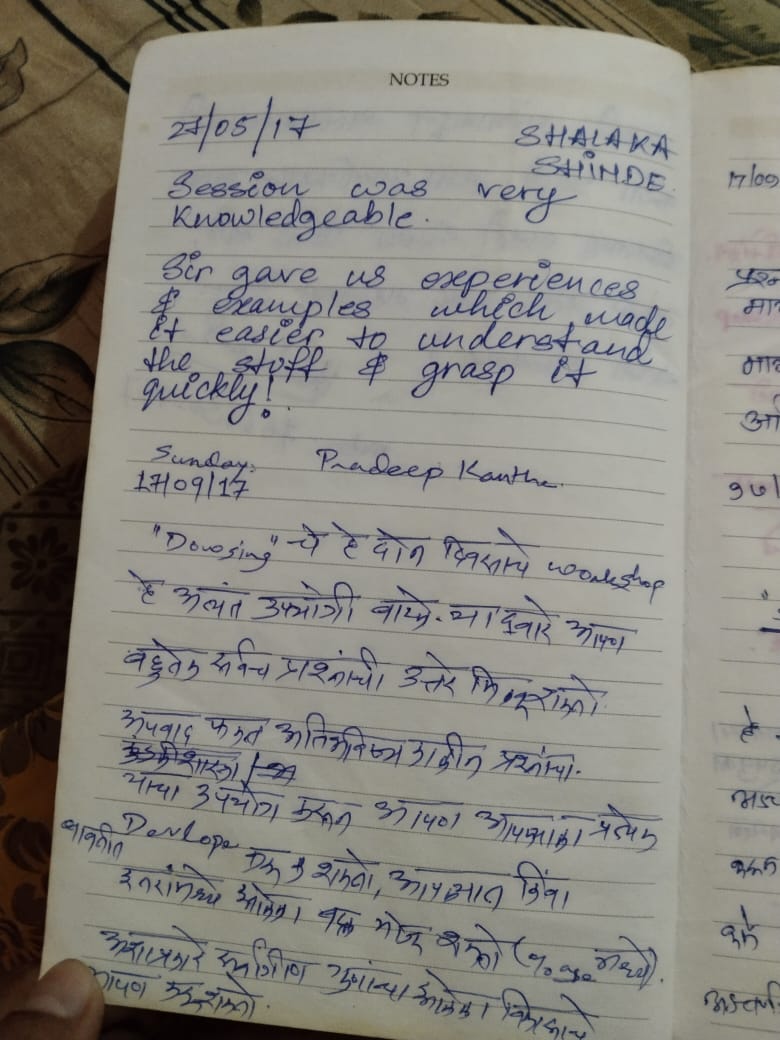 NOTES
27/05/17 SHALAKA
SHINDE.
Session was very
knowledgeable.
Sir gave us experiences
& examples which made
it easier to understand
the stuff & grasp it
quickly!
Sunday. Pradeep
17/09/17
"Dowsing" चे हे दोन दिवसाचे workshop
हे अत्यंत उपयोगी वाटते. या द्वारे आपण
बहुतेक सर्वच प्रश्नांची उत्तरे मिळवू शकतो.
अपवाद फक्त अतिभविष्य प्रश्नांचा.
याचा उपयोग करून आपण आपल्याला प्रत्येक
बाबतीत Develope करू शकतो, आपल्यात किंवा
इतरांमध्ये शकतो (%age मध्ये).
अशाप्रकारे
आपण करू शकतो.
17/09
मा
हे